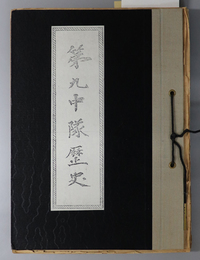 第九中隊歴史